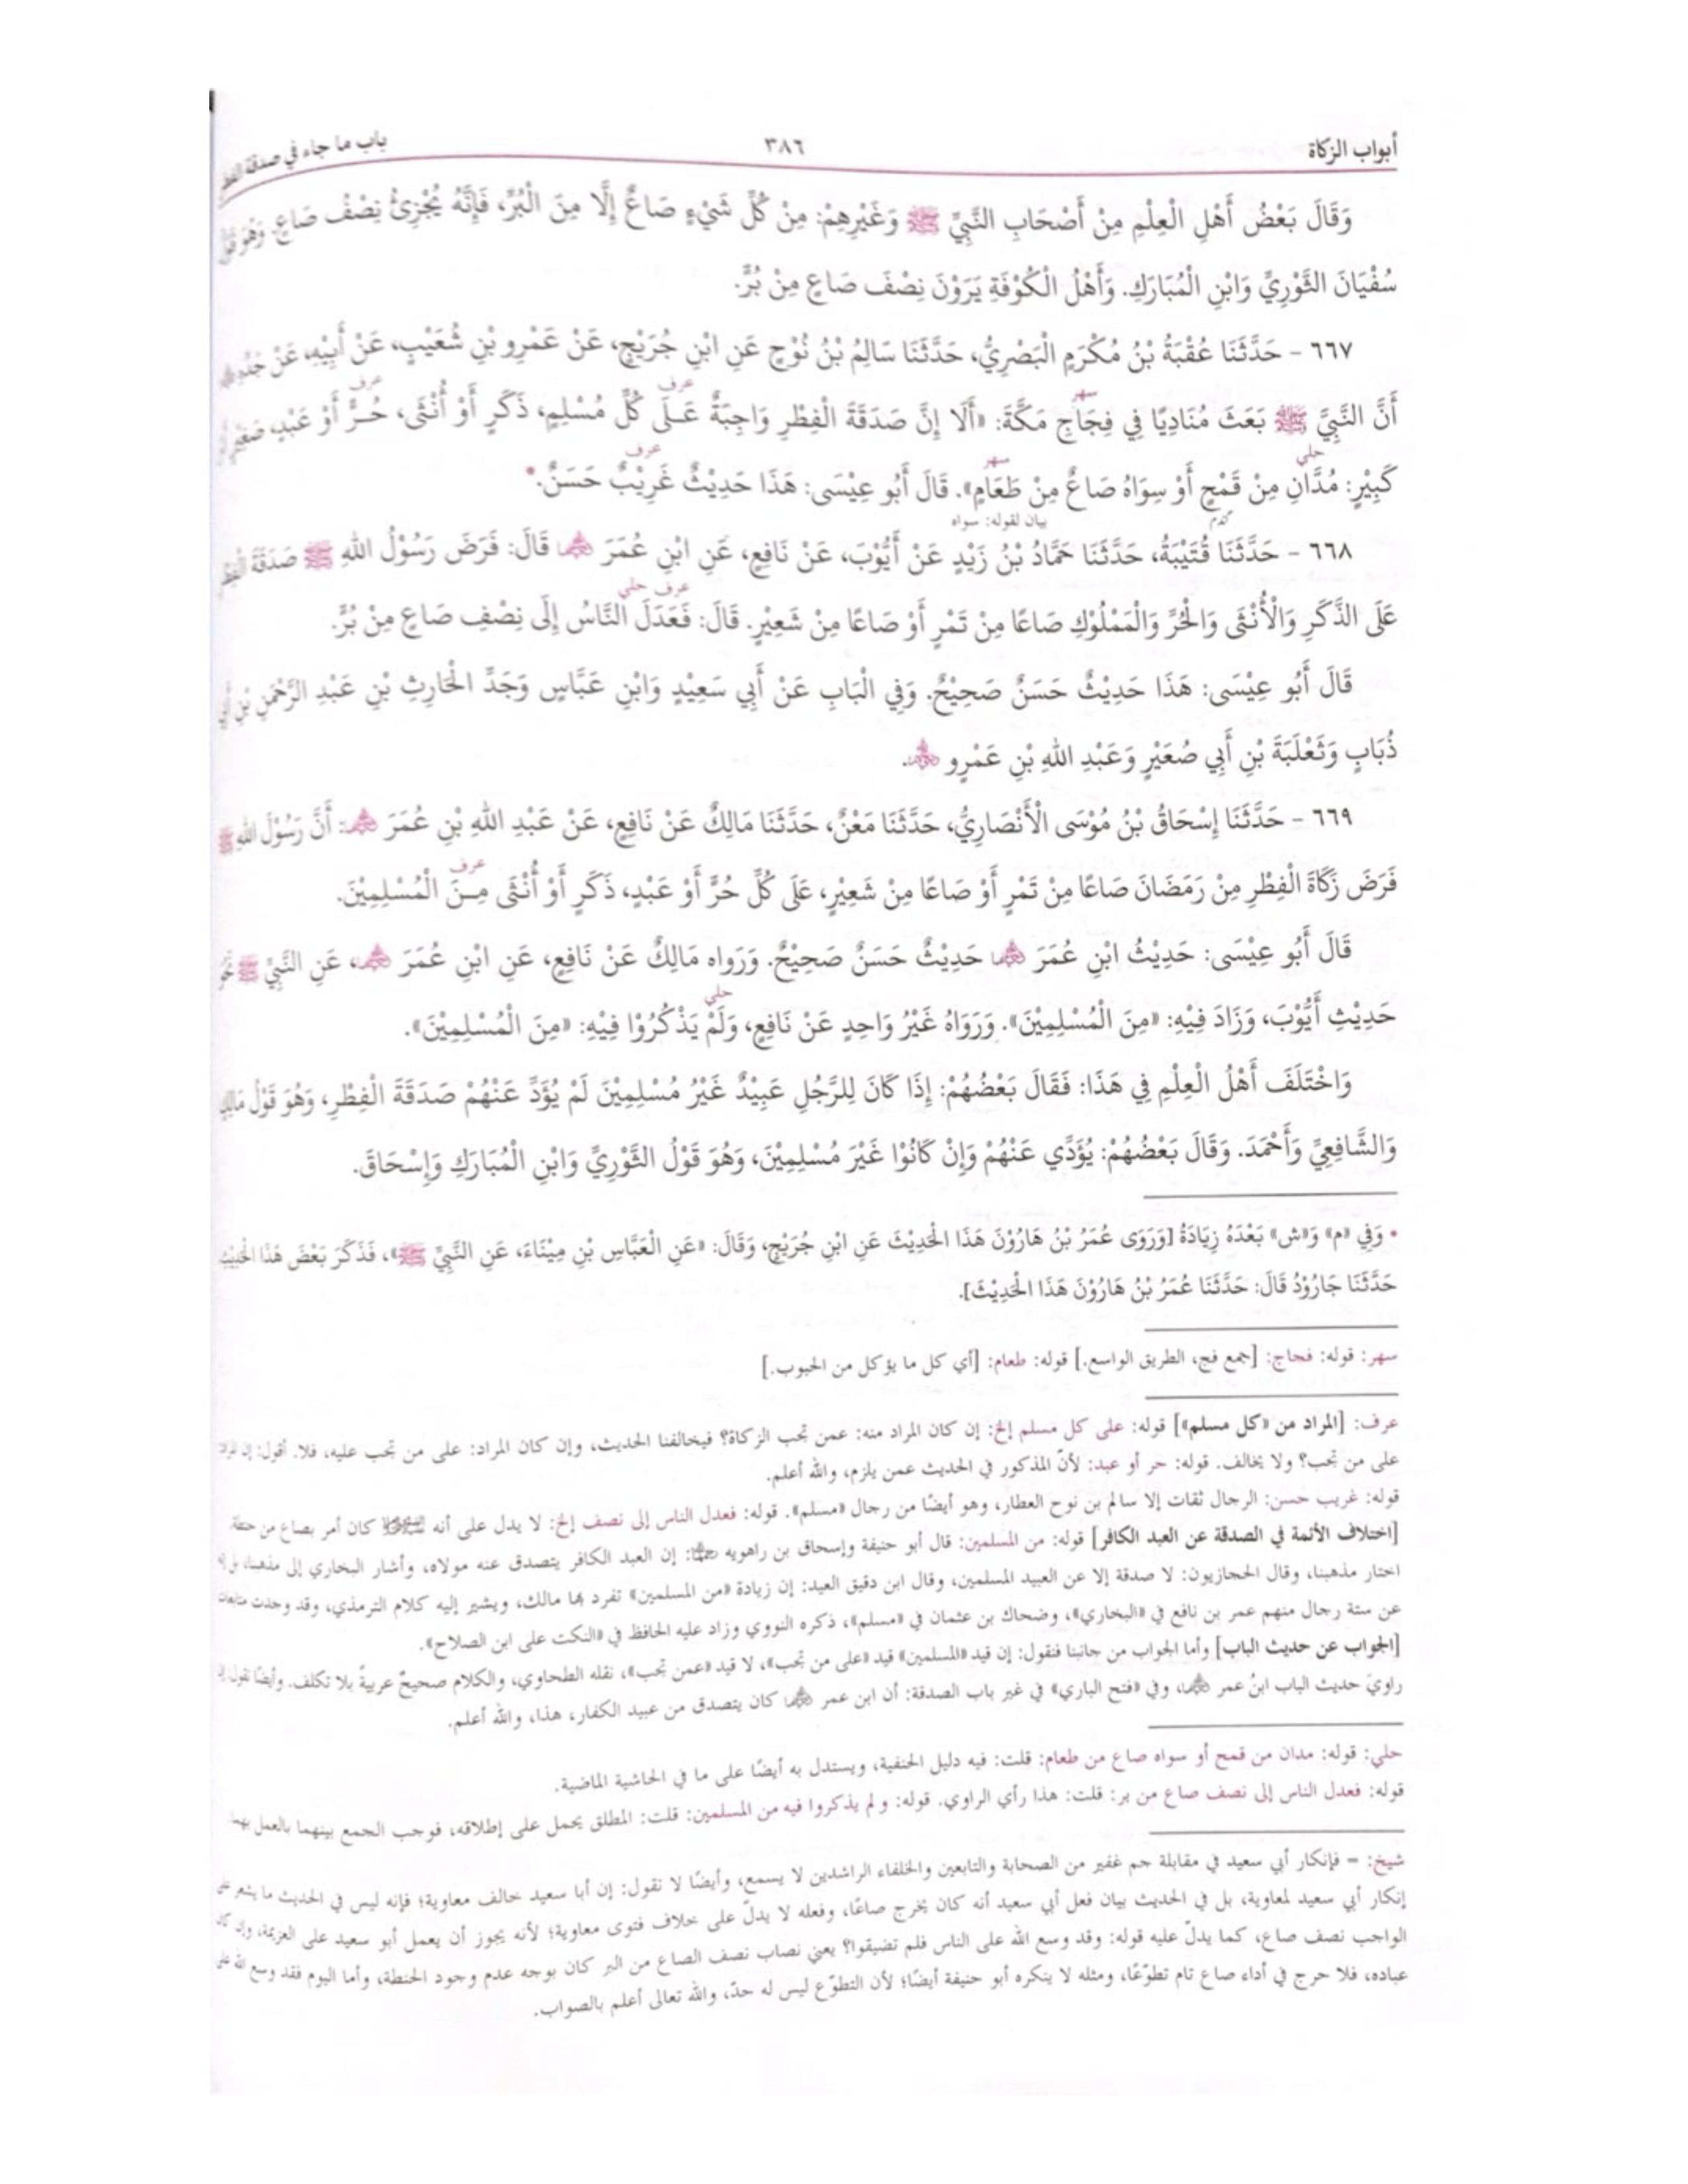 أبواب الزكاة ٣٨٦ باب ما جاء في صدقة الفطر
وَقَالَ بَعْضُ أَهْلِ الْعِلْمِ مِنْ أَصْحَابِ النَّبِيِّ ﷺ وَغَيْرِهِمْ: مِنْ كُلِّ شَيْءٍ صَاعٌ إِلَّا مِنَ الْبُرِّ، فَإِنَّهُ يُجْزِئُ نِصْفُ صَاعٍ. وَهُوَ قَوْلُ
سُفْيَانَ الثَّوْرِيِّ وَابْنِ الْمُبَارَكِ. وَأَهْلُ الْكُوْفَةِ يَرَوْنَ نِصْفَ صَاعٍ مِنْ بُرٍّ.
٦٦٧ - حَدَّثَنَا عُقْبَةُ بْنُ مُكْرَمٍ الْبَصْرِيُّ، حَدَّثَنَا سَالِمُ بْنُ نُوْحٍ عَنِ ابْنِ جُرَيْجٍ، عَنْ عَمْرِو بْنِ شُعَيْبٍ، عَنْ أَبِيْهِ، عَنْ جَدِّهِ
سهر عرف عرف
أَنَّ النَّبِيَّ ﷺ بَعَثَ مُنَادِيًا فِي فِجَاجِ مَكَّةَ: «أَلَا إِنَّ صَدَقَةَ الْفِطْرِ وَاجِبَةٌ عَلَى كُلِّ مُسْلِمٍ، ذَكَرٍ أَوْ أُنْثَى، حُرٍّ أَوْ عَبْدٍ، صَغِيْرٍ أَوْ
حلي سهر عرف
كَبِيْرٍ: مُدَّانِ مِنْ قَمْحٍ أَوْ سِوَاهُ صَاعٌ مِنْ طَعَامٍ». قَالَ أَبُو عِيْسَى: هَذَا حَدِيْثٌ غَرِيْبٌ حَسَنٌ.•
گندم بيان لقوله: سواه
٦٦٨ - حَدَّثَنَا قُتَيْبَةُ، حَدَّثَنَا حَمَّادُ بْنُ زَيْدٍ عَنْ أَيُّوْبَ، عَنْ نَافِعٍ، عَنِ ابْنِ عُمَرَ ﷠ قَالَ: فَرَضَ رَسُوْلُ اللهِ ﷺ صَدَقَةَ الْفِطْرِ
عرف حلي
عَلَى الذَّكَرِ وَالْأُنْثَى وَالْحُرِّ وَالْمَمْلُوْكِ صَاعًا مِنْ تَمْرٍ أَوْ صَاعًا مِنْ شَعِيْرٍ. قَالَ: فَعَدَلَ النَّاسُ إِلَى نِصْفِ صَاعٍ مِنْ بُرٍّ.
قَالَ أَبُو عِيْسَى: هَذَا حَدِيْثٌ حَسَنٌ صَحِيْحٌ. وَفِي الْبَابِ عَنْ أَبِي سَعِيْدٍ وَابْنِ عَبَّاسٍ وَجَدِّ الْحَارِثِ بْنِ عَبْدِ الرَّحْمَنِ بْنِ أَبِي
ذُبَابٍ وَثَعْلَبَةَ بْنِ أَبِي صُعَيْرٍ وَعَبْدِ اللهِ بْنِ عَمْرٍو.
٦٦٩ - حَدَّثَنَا إِسْحَاقُ بْنُ مُوْسَى الْأَنْصَارِيُّ، حَدَّثَنَا مَعْنٌ، حَدَّثَنَا مَالِكٌ عَنْ نَافِعٍ، عَنْ عَبْدِ اللهِ بْنِ عُمَرَ ﷠: أَنَّ رَسُوْلَ اللهِ ﷺ
عرف
فَرَضَ زَكَاةَ الْفِطْرِ مِنْ رَمَضَانَ صَاعًا مِنْ تَمْرٍ أَوْ صَاعًا مِنْ شَعِيْرٍ، عَلَى كُلِّ حُرٍّ أَوْ عَبْدٍ، ذَكَرٍ أَوْ أُنْثَى مِنَ الْمُسْلِمِيْنَ.
قَالَ أَبُو عِيْسَى: حَدِيْثُ ابْنِ عُمَرَ ﷠ حَدِيْثٌ حَسَنٌ صَحِيْحٌ. وَرَوَاه مَالِكٌ عَنْ نَافِعٍ، عَنِ ابْنِ عُمَرَ ﷠، عَنِ النَّبِيِّ ﷺ نَحْوَ
حلي
حَدِيْثِ أَيُّوْبَ، وَزَادَ فِيْهِ: «مِنَ الْمُسْلِمِيْنَ». وَرَوَاهُ غَيْرُ وَاحِدٍ عَنْ نَافِعٍ، وَلَمْ يَذْكُرُوْا فِيْهِ: «مِنَ الْمُسْلِمِيْنَ».
وَاخْتَلَفَ أَهْلُ الْعِلْمِ فِي هَذَا: فَقَالَ بَعْضُهُمْ: إِذَا كَانَ لِلرَّجُلِ عَبِيْدٌ غَيْرُ مُسْلِمِيْنَ لَمْ يُؤَدِّ عَنْهُمْ صَدَقَةَ الْفِطْرِ، وَهُوَ قَوْلُ مَالِكٍ
وَالشَّافِعِيِّ وَأَحْمَدَ. وَقَالَ بَعْضُهُمْ: يُؤَدِّي عَنْهُمْ وَإِنْ كَانُوْا غَيْرَ مُسْلِمِيْنَ، وَهُوَ قَوْلُ الثَّوْرِيِّ وَابْنِ الْمُبَارَكِ وَإِسْحَاقَ.
• وَفِي «م» وَ«ش» بَعْدَهُ زِيَادَةُ [وَرَوَى عُمَرُ بْنُ هَارُوْنَ هَذَا الْحَدِيْثَ عَنِ ابْنِ جُرَيْجٍ، وَقَالَ: «عَنِ الْعَبَّاسِ بْنِ مِيْنَاءَ، عَنِ النَّبِيِّ ﷺ»، فَذَكَرَ بَعْضَ هَذَا الْحَدِيْثِ
حَدَّثَنَا جَارُوْدُ قَالَ: حَدَّثَنَا عُمَرُ بْنُ هَارُوْنَ هَذَا الْحَدِيْثَ].
سهر: قوله: فجاج: [جمع فج، الطريق الواسع.] قوله: طعام: [أي كل ما يؤكل من الحبوب.]
عرف: [المراد من «كل مسلم»] قوله: على كل مسلم إلخ: إن كان المراد منه: عمن تجب الزكاة؟ فيخالفنا الحديث، وإن كان المراد: على من تجب عليه، فلا. أقول: إن المراد:
على من تجب؟ ولا يخالف. قوله: حر أو عبد: لأنّ المذكور في الحديث عمن يلزم، والله أعلم.
قوله: غريب حسن: الرجال ثقات إلا سالم بن نوح العطار، وهو أيضًا من رجال «مسلم». قوله: فعدل الناس إلى نصف إلخ: لا يدل على أنه كان أمر بصاع من حنطة.
[اختلاف الأئمة في الصدقة عن العبد الكافر] قوله: من المسلمين: قال أبو حنيفة وإسحاق بن راهويه: إن العبد الكافر يتصدق عنه مولاه، وأشار البخاري إلى مذهبنا، بل إنه
اختار مذهبنا، وقال الحجازيون: لا صدقة إلا عن العبيد المسلمين، وقال ابن دقيق العيد: إن زيادة «من المسلمين» تفرد بها مالك، ويشير إليه كلام الترمذي، وقد وجدت متابعات
عن ستة رجال منهم عمر بن نافع في «البخاري»، وضحاك بن عثمان في «مسلم»، ذكره النووي وزاد عليه الحافظ في «النكت على ابن الصلاح».
[الجواب عن حديث الباب] وأما الجواب من جانبنا فنقول: إن قيد «المسلمين» قيد «على من تجب»، لا قيد «عمن تجب»، نقله الطحاوي، والكلام صحيحٌ عربيةً بلا تكلف. وأيضًا نقول: إن
راويَ حديث الباب ابنُ عمر ﷠، وفي «فتح الباري» في غير باب الصدقة: أن ابن عمر ﷠ كان يتصدق من عبيد الكفار، هذا، والله أعلم.
حلي: قوله: مدان من قمح أو سواه صاع من طعام: قلت: فيه دليل الحنفية، ويستدل به أيضًا على ما في الحاشية الماضية.
قوله: فعدل الناس إلى نصف صاع من بر: قلت: هذا رأي الراوي. قوله: ولم يذكروا فيه من المسلمين: قلت: المطلق يحمل على إطلاقه، فوجب الجمع بينهما بالعمل بهما.
شيخ: = فإنكار أبي سعيد في مقابلة جم غفير من الصحابة والتابعين والخلفاء الراشدين لا يسمع، وأيضًا لا نقول: إن أبا سعيد خالف معاوية؛ فإنه ليس في الحديث ما يشعر على
إنكار أبي سعيد لمعاوية، بل في الحديث بيان فعل أبي سعيد أنه كان يخرج صاعًا، وفعله لا يدلّ على خلاف فتوى معاوية؛ لأنه يجوز أن يعمل أبو سعيد على العزيمة، وإن كان
الواجب نصف صاع، كما يدلّ عليه قوله: وقد وسع الله على الناس فلم تضيقوا؟ يعني نصاب نصف الصاع من البر كان بوجه عدم وجود الحنطة، وأما اليوم فقد وسع الله على
عباده، فلا حرج في أداء صاع تام تطوّعًا، ومثله لا ينكره أبو حنيفة أيضًا؛ لأن التطوّع ليس له حدّ، والله تعالى أعلم بالصواب.